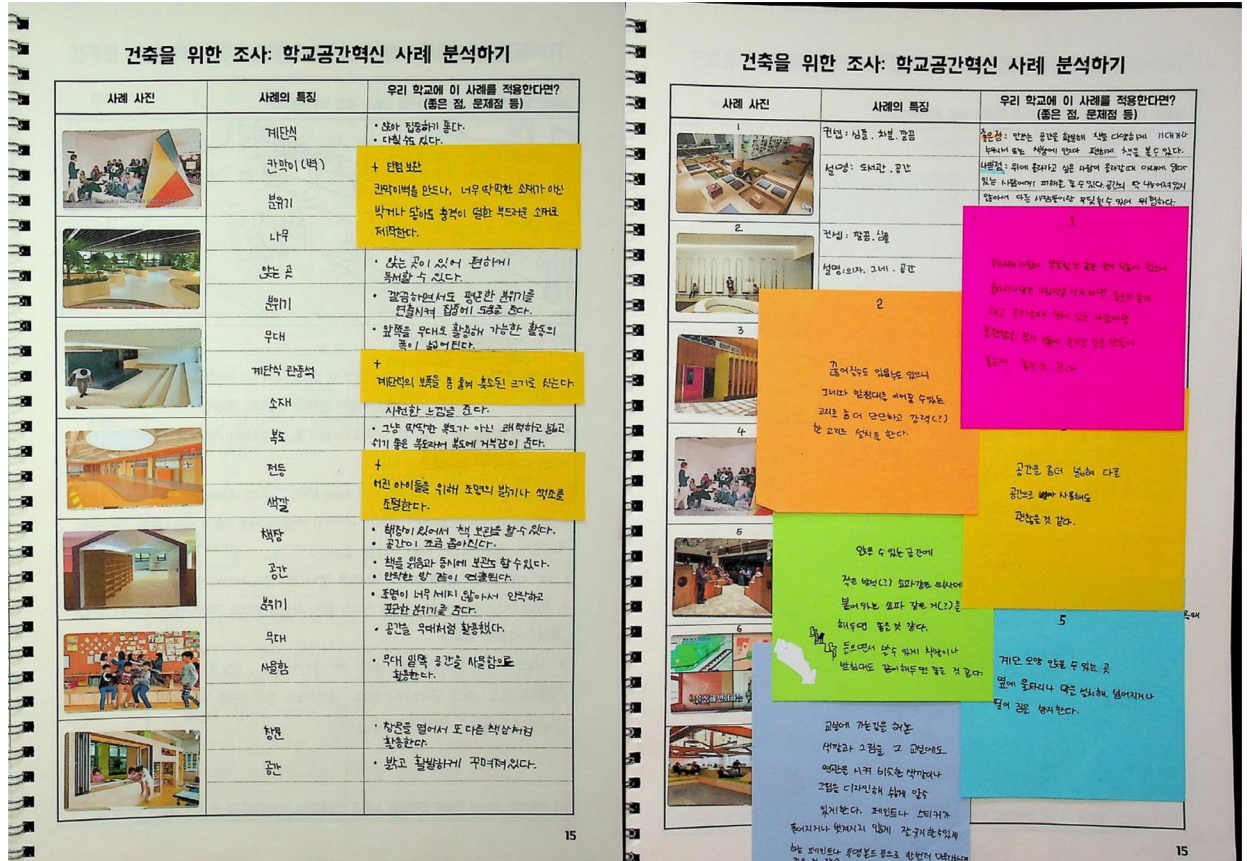 건축을 위한 조사: 학교공간혁신 사례 분석하기
사례 사진
사례의 특징
우리 학교에 이 사례를 적용한다면?
(좋은 점, 문제점 등)
계단식
• 앉아 집중하기 좋다.
• 다칠 수도 있다.
칸막이(벽)
분위기
+ 단점 보완
칸막이벽을 만드나, 너무 딱딱한 소재가 아닌
박거나 닿아도 충격이 덜한 부드러운 소재로
제작한다.
나무
앉는 곳
• 앉는 곳이 있어 편하게
독서할 수 있다.
분위기
• 깔끔하면서도 평온한 분위기를
연출시켜 집중에 도움을 준다.
무대
• 앞쪽을 무대로 활용해 가능한 활동의
폭이 넓어진다.
계단식 관중석
+
계단식의 보폭을 좀 줄여 축소된 크기로 짓는다.
소재
시원한 느낌을 준다.
복도
• 그냥 딱딱한 복도가 아닌 쾌적하고 놀고
쉬기 좋은 복도라서 복도에 거부감이 준다.
전등
색깔
+
어린 아이들을 위해 조명의 밝기나 색조를
조절한다.
책장
• 책장이 있어서 책 보관을 할 수 있다.
• 공간이 조금 좁아진다.
공간
• 책을 읽음과 동시에 보관도 할 수 있다.
• 안락한 방 같이 연출된다.
분위기
• 조명이 너무 세지 않아서 안락하고
포근한 분위기를 준다.
무대
• 공간을 무대처럼 활용했다.
사물함
• 무대 밑쪽 공간을 사물함으로
활용한다.
창문
• 창문을 열어서 또 다른 책상처럼
활용한다.
공간
• 밝고 활발하게 꾸며져있다.
15
건축을 위한 조사: 학교공간혁신 사례 분석하기
사례 사진
사례의 특징
우리 학교에 이 사례를 적용한다면?
(좋은 점, 문제점 등)
1
컨셉: 심플, 차분, 깔끔
설명: 도서관, 공간
좋은점: 안쓰는 공간을 활용해 책을 다양하게 기대거나
누워서 또는 책상에 앉아 편하게 책을 볼 수 있다.
나쁜점: 위에 올라가고 싶은 사람이 올라갈때 아래에 앉아
있는 사람에게 피해를 줄 수 있다. 공간이 딱 나눠져있지
않아서 다른 사람들이랑 부딪힐 수 있어 위험하다.
2
컨셉: 깔끔, 심플
설명: 의자, 그네, 공간
1
2
끊어질수도 있을수도 있으니
그네와 받침대를 이어줄 수 있는
고리를 좀 더 단단하고 강력(?)
한 고리로 설치를 한다.
3
공간을 좀더 넓혀 다른
공간으로 사용해도
괜찮을 것 같다.
4
앉을 수 있는 공간에
작은 방석(?) 쇼파같은 의자에
붙어있는 쇼파 같은 거(?)를
해두면 좋을 것 같다.
들으면서 쓸 수 있게 책상이나
받침대도 같이 해두면 좋을 것 같다.
5
5
계단 모양 앉을 수 있는 곳
옆에 울타리나 막을 설치해 넘어지거나
떨어 짐을 방지한다.
6
교실에 가는길을 해논
색깔과 그림을 그 교실에도
연관을 시켜 비슷한 색깔이나
그림을 디자인해 쉽게 알수
있게 한다. 페인트나 스티커가
떨어지거나 벗겨지지 않게
15